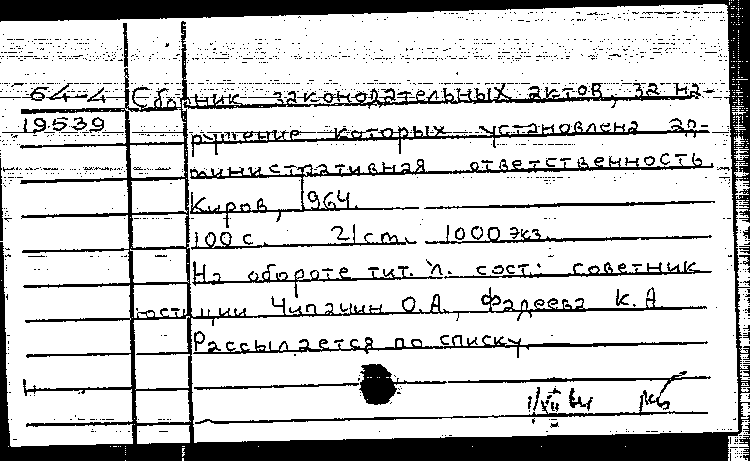 64-4 Сборник законодательных актов, за на-
19539 рушение которых установлена ад-
министративная ответственность.
Киров, 1964.
100 с. 21 cm. 1000 экз.
На обороте тит. л. сост.: советник
юстиции Чипачин О.А., Фадеева К.А
Рассылается по списку.